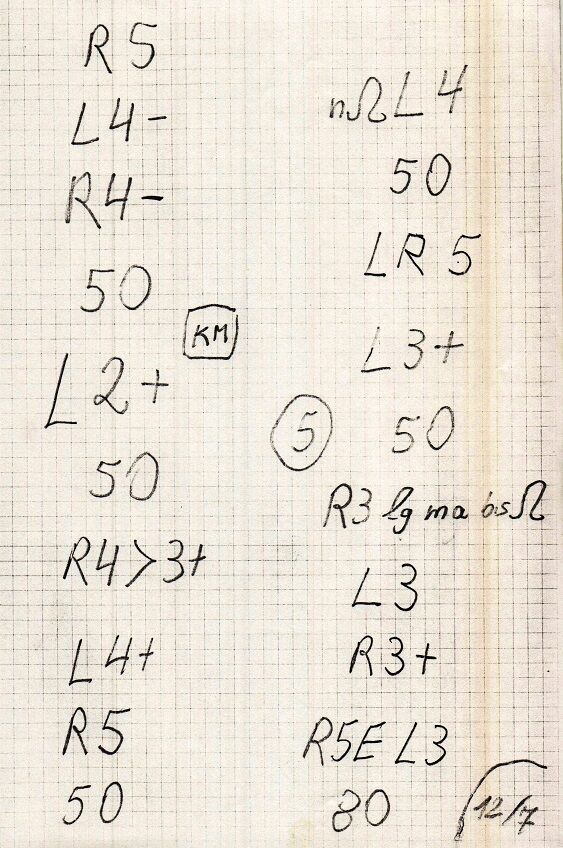 R5
L4-
R4-
50
KM
L2+
50
R4>3+
L4+
R5
50
nΩL4
50
LR 5
L3+
5
50
R3 lg ma bis Ω
L3
R3+
R5E L3
80
12/7